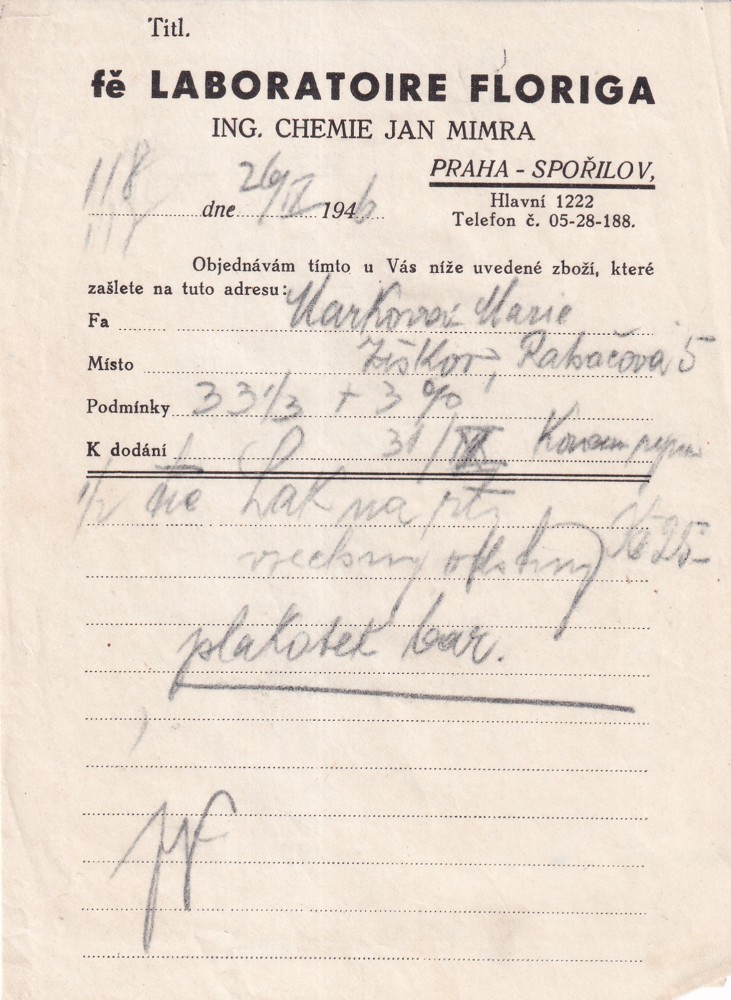 Titl.
fě LABORATOIRE FLORIGA
ING. CHEMIE JAN MIMRA
PRAHA - SPOŘILOV,
Hlavní 1222
Telefon č. 05-28-188.
118
dne 26/IX 1946
Objednávám tímto u Vás níže uvedené zboží, které
zašlete na tuto adresu:
Fa Marie
Místo Žižkov, 5
Podmínky 33 1/3 + 3 %
K dodání 31/
1/2 Lak na rty Kč 25-
všechny odstíny
plakátek bar.